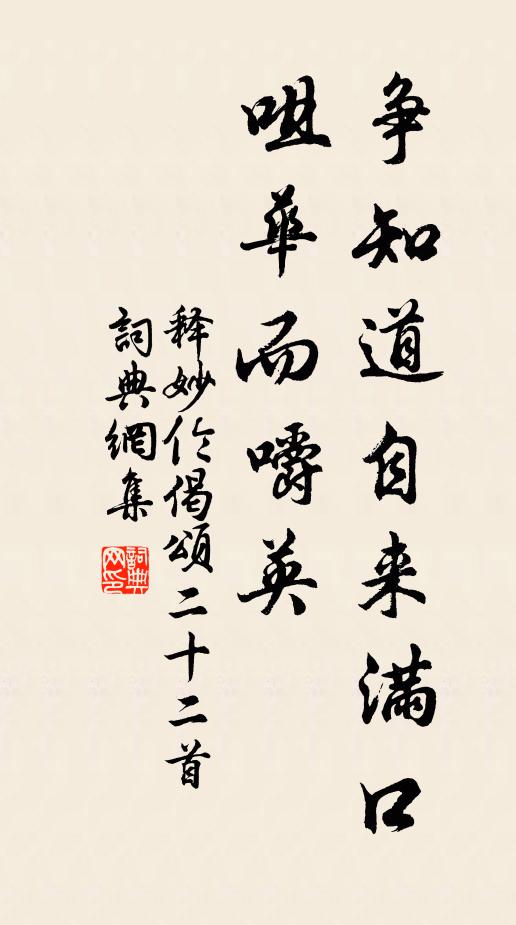 争知道自来满口
咀华而嚼英
释妙伦偈颂二十二首
詞典網集
詞典网印